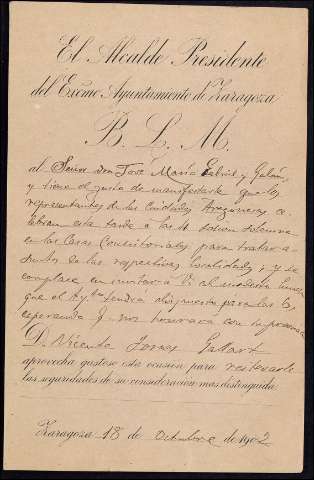 El Alcalde Presidente
del Excmo Ayuntamiento de Zaragoza
B. L. M.
al Señor Don José María Gabriel y Galán,
y tiene el gusto de manifestarle que los
representantes de las Ciudades Aragonesas ce-
lebran esta tarde a las 4 sesion solemne
en las Casas Consistoriales para tratar a-
suntos de las respectivas localidades, y se
complace en invitar á V. al modesto
que el Ayto tendrá dispuesto para las 6,
esperando nos honrará con su presencia
D. Vicente Fornés Gallart
aprovecha gustoso esta ocasion para reiterarle
las seguridades de su consideracion mas distinguida.
Zaragoza 18 de Octubre de 1902